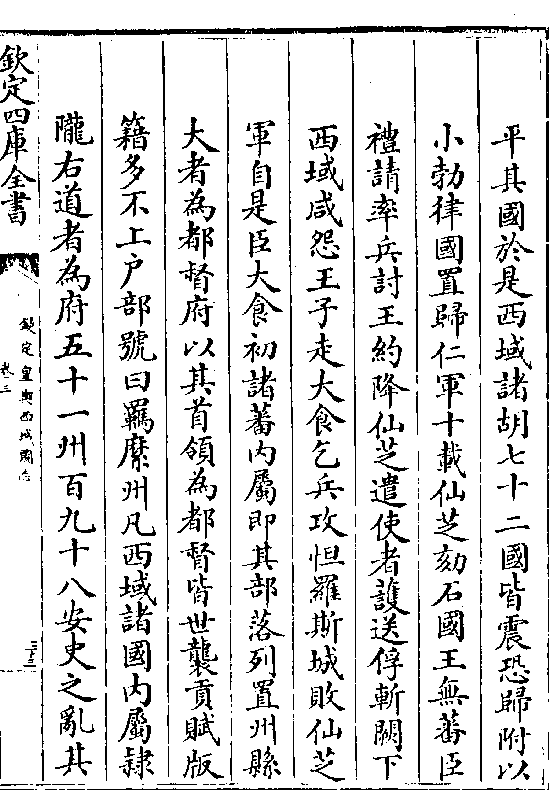 平其國於是西域諸胡七十二國皆震恐歸附以
小勃律國置歸仁軍十載仙芝劾石國王無蕃臣
禮請率兵討王約降仙芝遣使者護送俘斬闕下
西域咸怨王子走大食乞兵攻怛羅斯城敗仙芝
軍自是臣大食初諸蕃内屬即其部落列置州縣
大者為都督府以其首領為都督皆世襲貢賦版
籍多不上户部號曰羈縻州凡西域諸國内屬隸
隴右道者為府五十一州百九十八安史之亂其
欽定四庫全書
欽定皇輿西域圖志
卷三
三十三